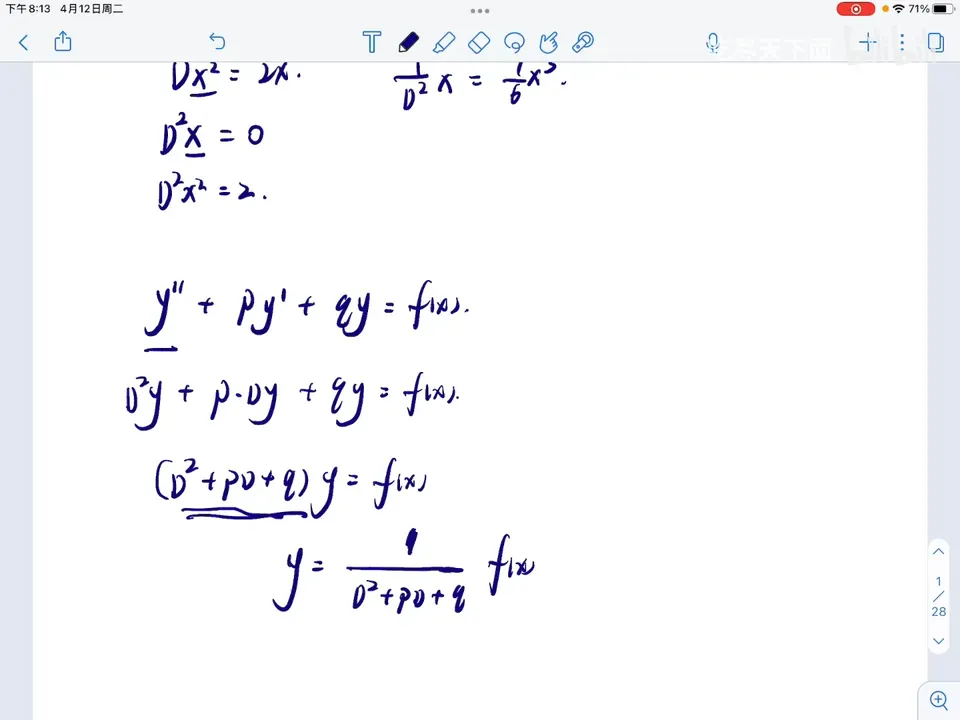 下午8:13 4月12日周二 71%
Dx² = 2x. 1/D² x = 1/6 x³.
D²x = 0
D²x² = 2.
y'' + py' + qy = f(x).
D²y + p·Dy + qy = f(x).
(D²+pD+q) y = f(x)
y = 1/(D²+pD+q) f(x)
1
/
28